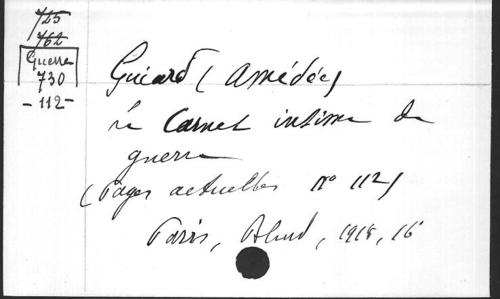 725
762
Guerre
730
-112-
Guiard (Amédée)
Carnet intime de
guerre
(Pages actuelles n° 112)
Paris, Bloud, 1918, 16°